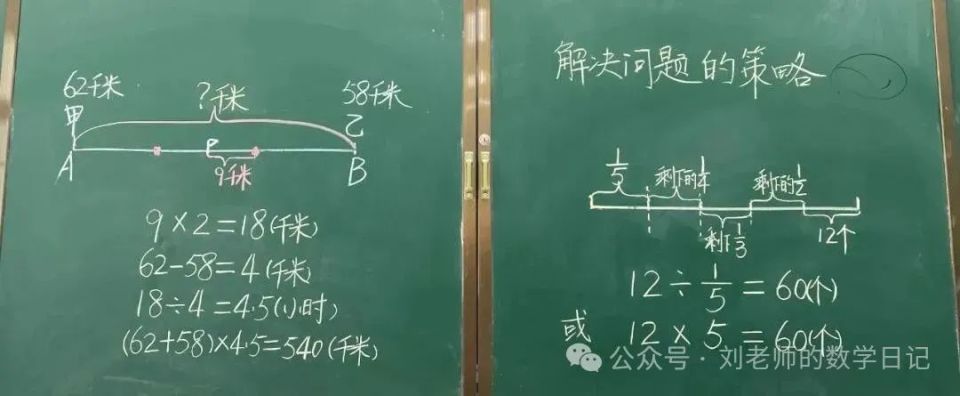 62千米
?千米
58千米
甲
乙
A
P
B
9千米
9×2=18(千米)
62-58=4(千米)
18÷4=4.5(小时)
(62+58)×4.5=540(千米)
解决问题的策略
1/5
剩下的1/4
剩下的1/2
剩下1/3
12个
12÷1/5=60(个)
或 12×5=60(个)
公众号·刘老师的数学日记